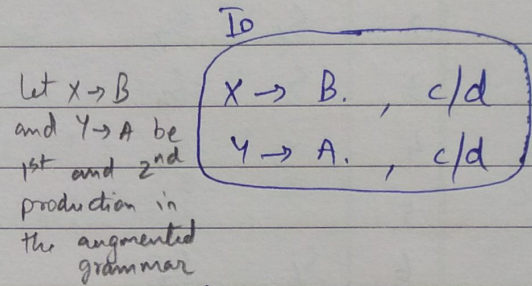 I0
Let X → B
and Y → A be
1st and 2nd
production in
the augmented
grammar
X → B. , c/d
Y → A. , c/d